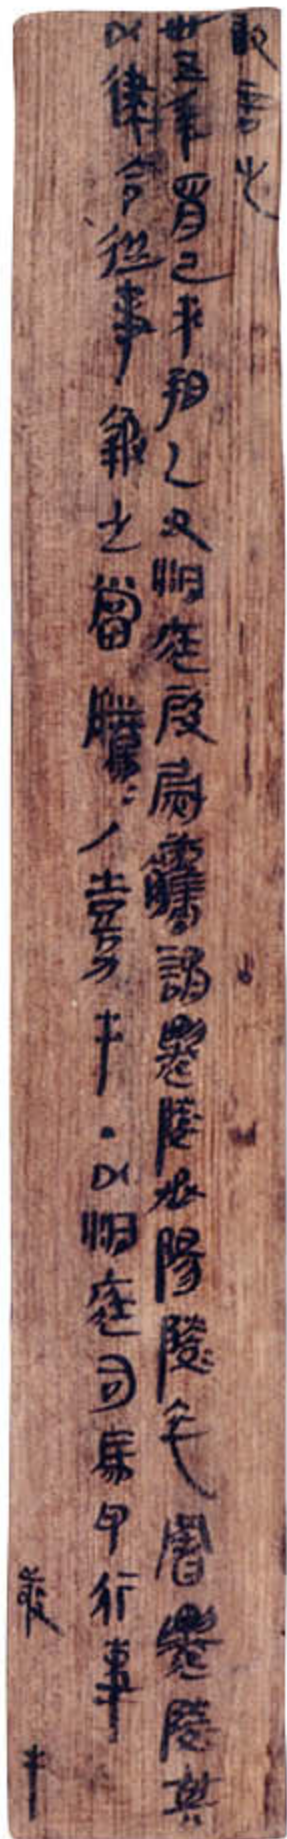 敢言之
卅五年四月己未朔乙丑洞庭叚尉觿謂遷陵丞陽陵卒署遷陵其
以律令從事報之當騰=/嘉手·以洞庭司馬印行事
敬手